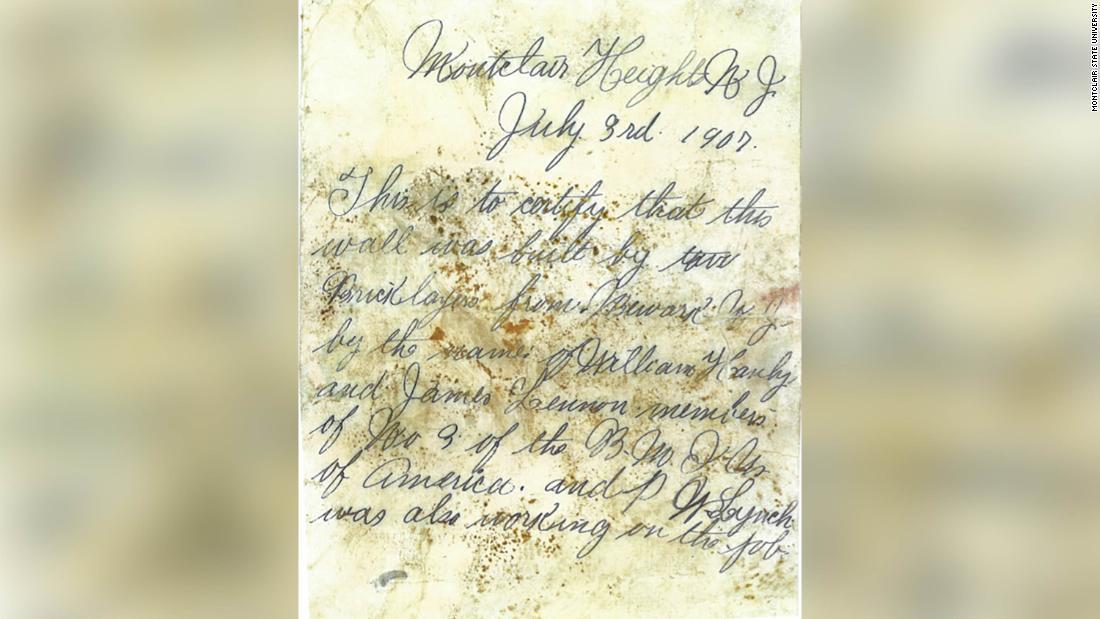 Montclair Heights N J.
July 3rd. 1907.
This is to certify that this
wall was built by two
Bricklayers from Newark N. J.
by the names of William Hanly
and James Lennon members
of No. 3 of the B. M. I. U.
of America. and P W Lynch
was also working on the job.
MONTCLAIR STATE UNIVERSITY